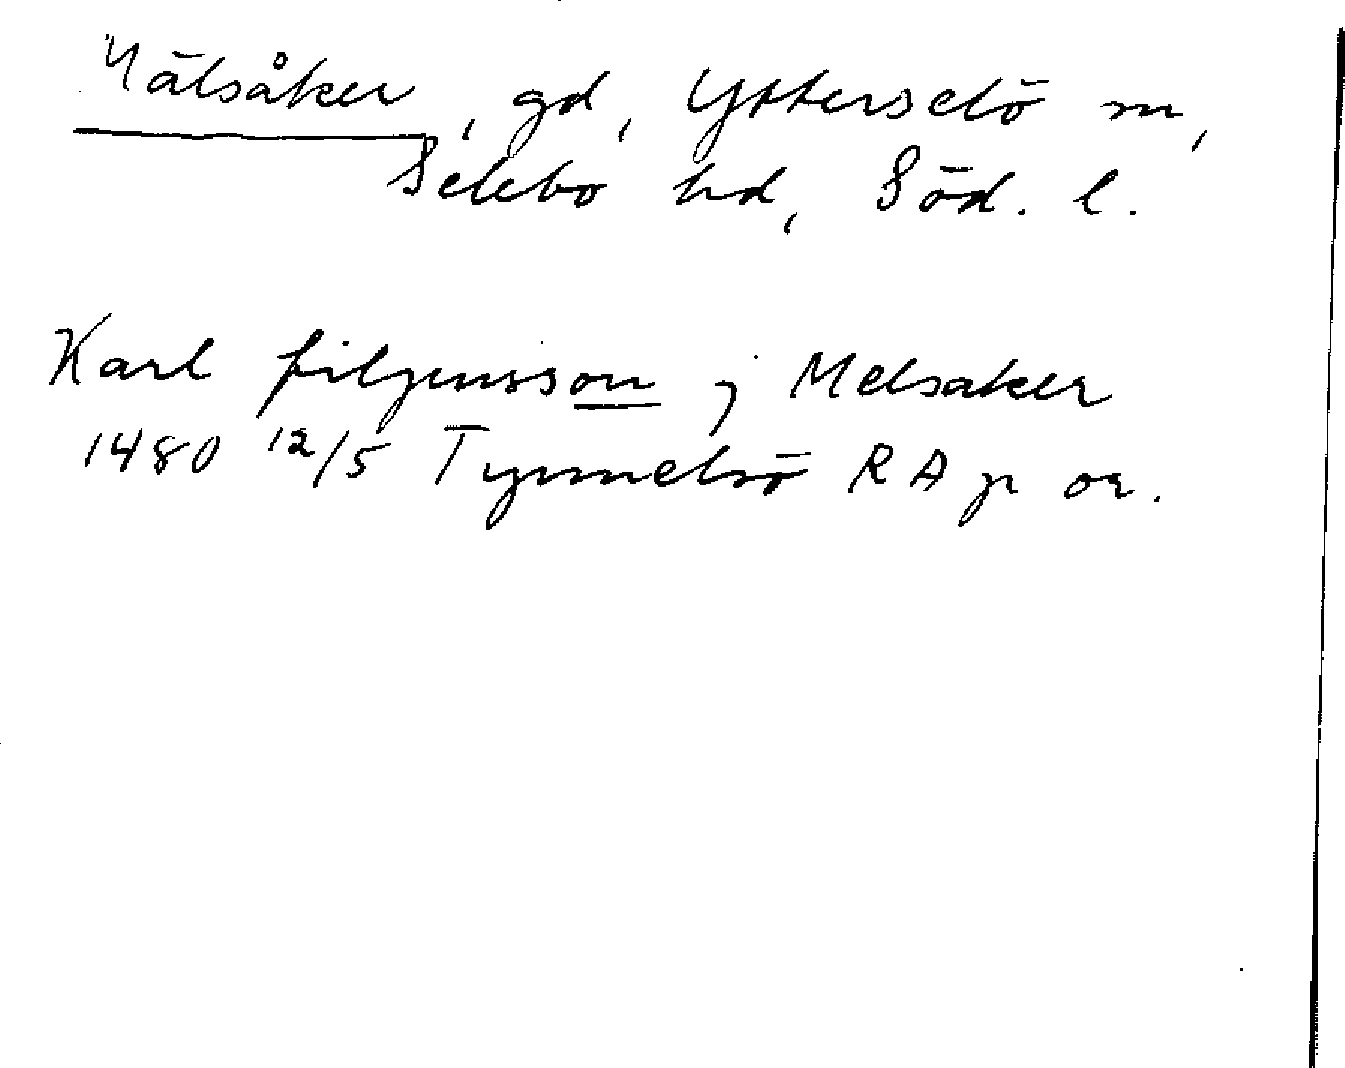 Mälsåker, gd, Ytterselö sn,
Selebo hd, Söd. l.
Karl filjensson j Melsaker
1480 12/5 Tynnelsö RA p or.